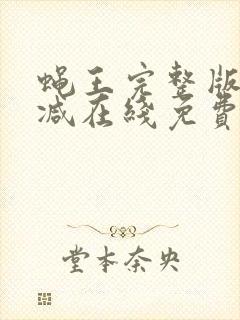 蝇王完整版
减在綫免費
堂本奈央